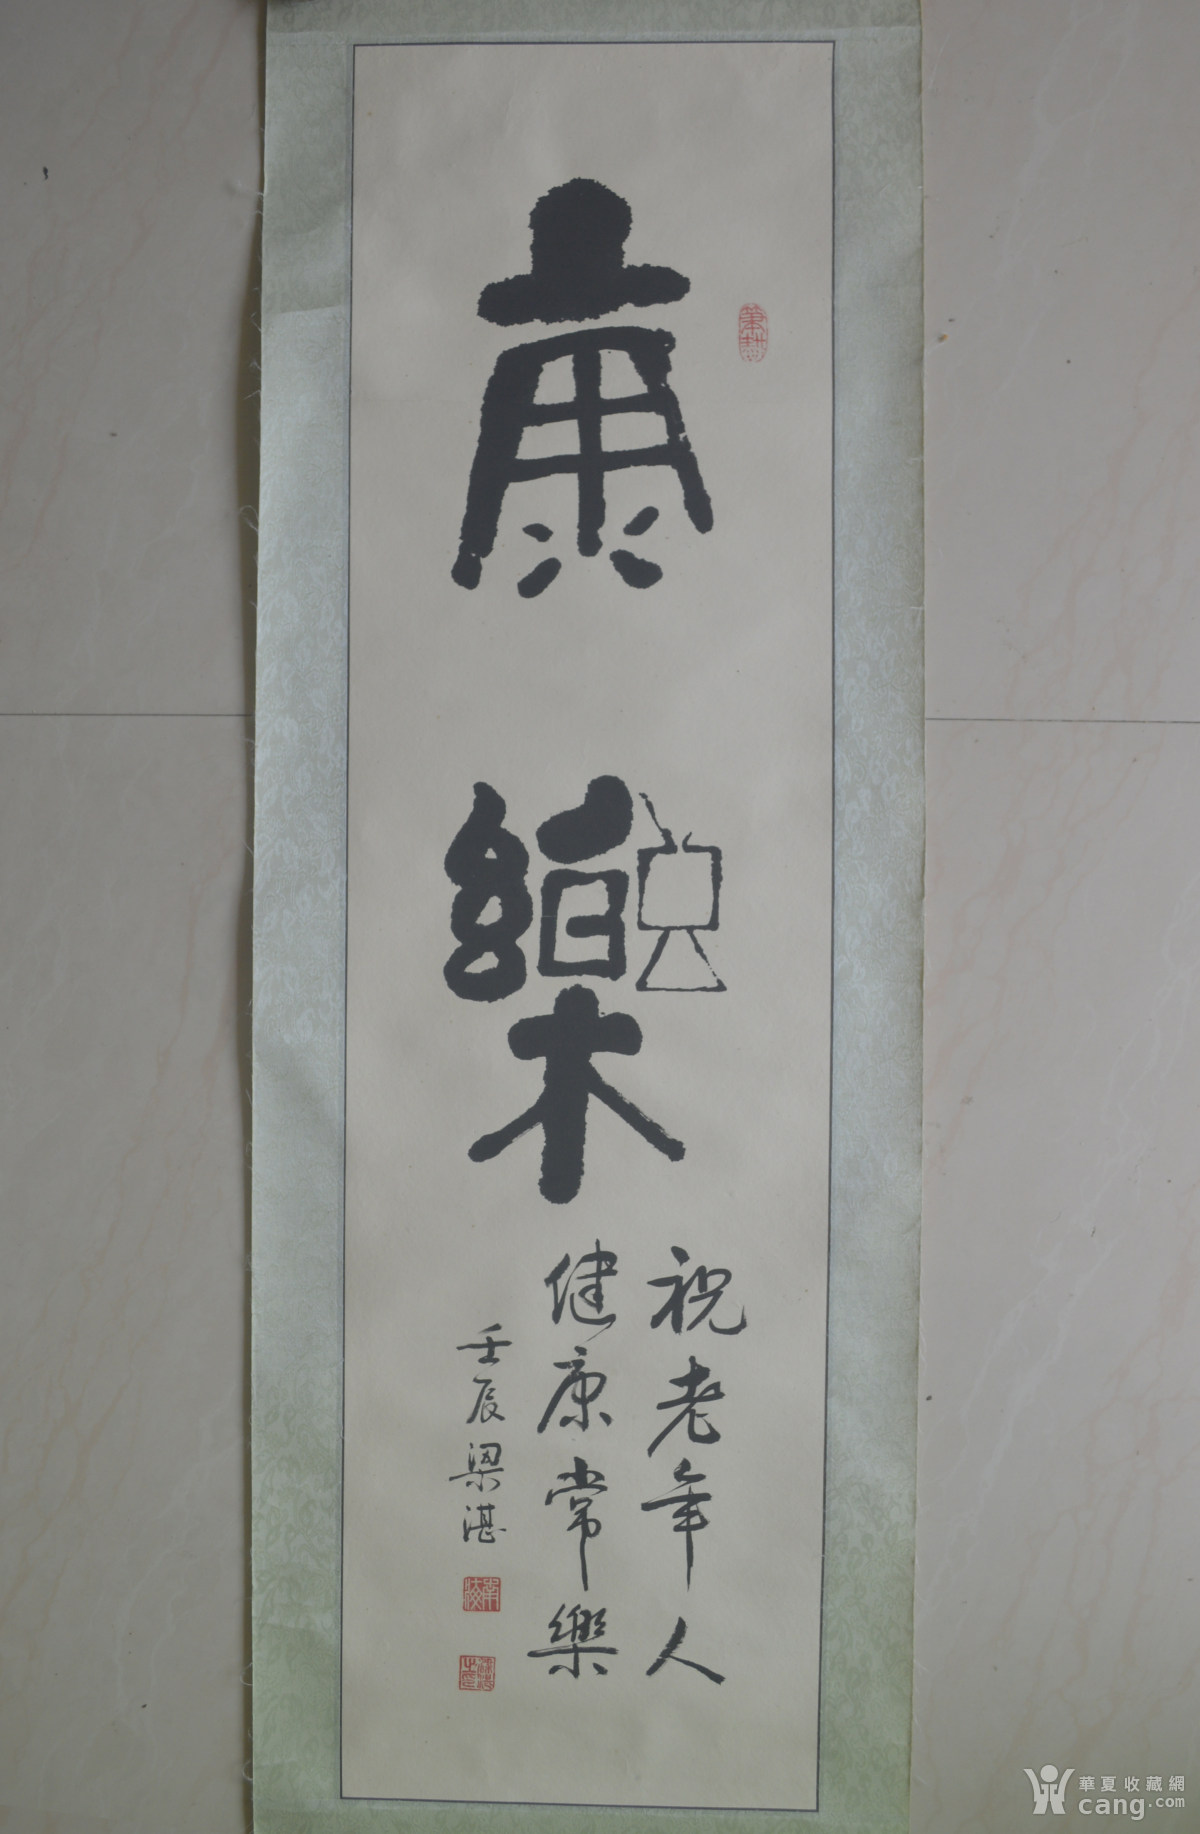 康樂
祝老年人
健康常樂
壬辰梁湛
華夏收藏網
cang.com